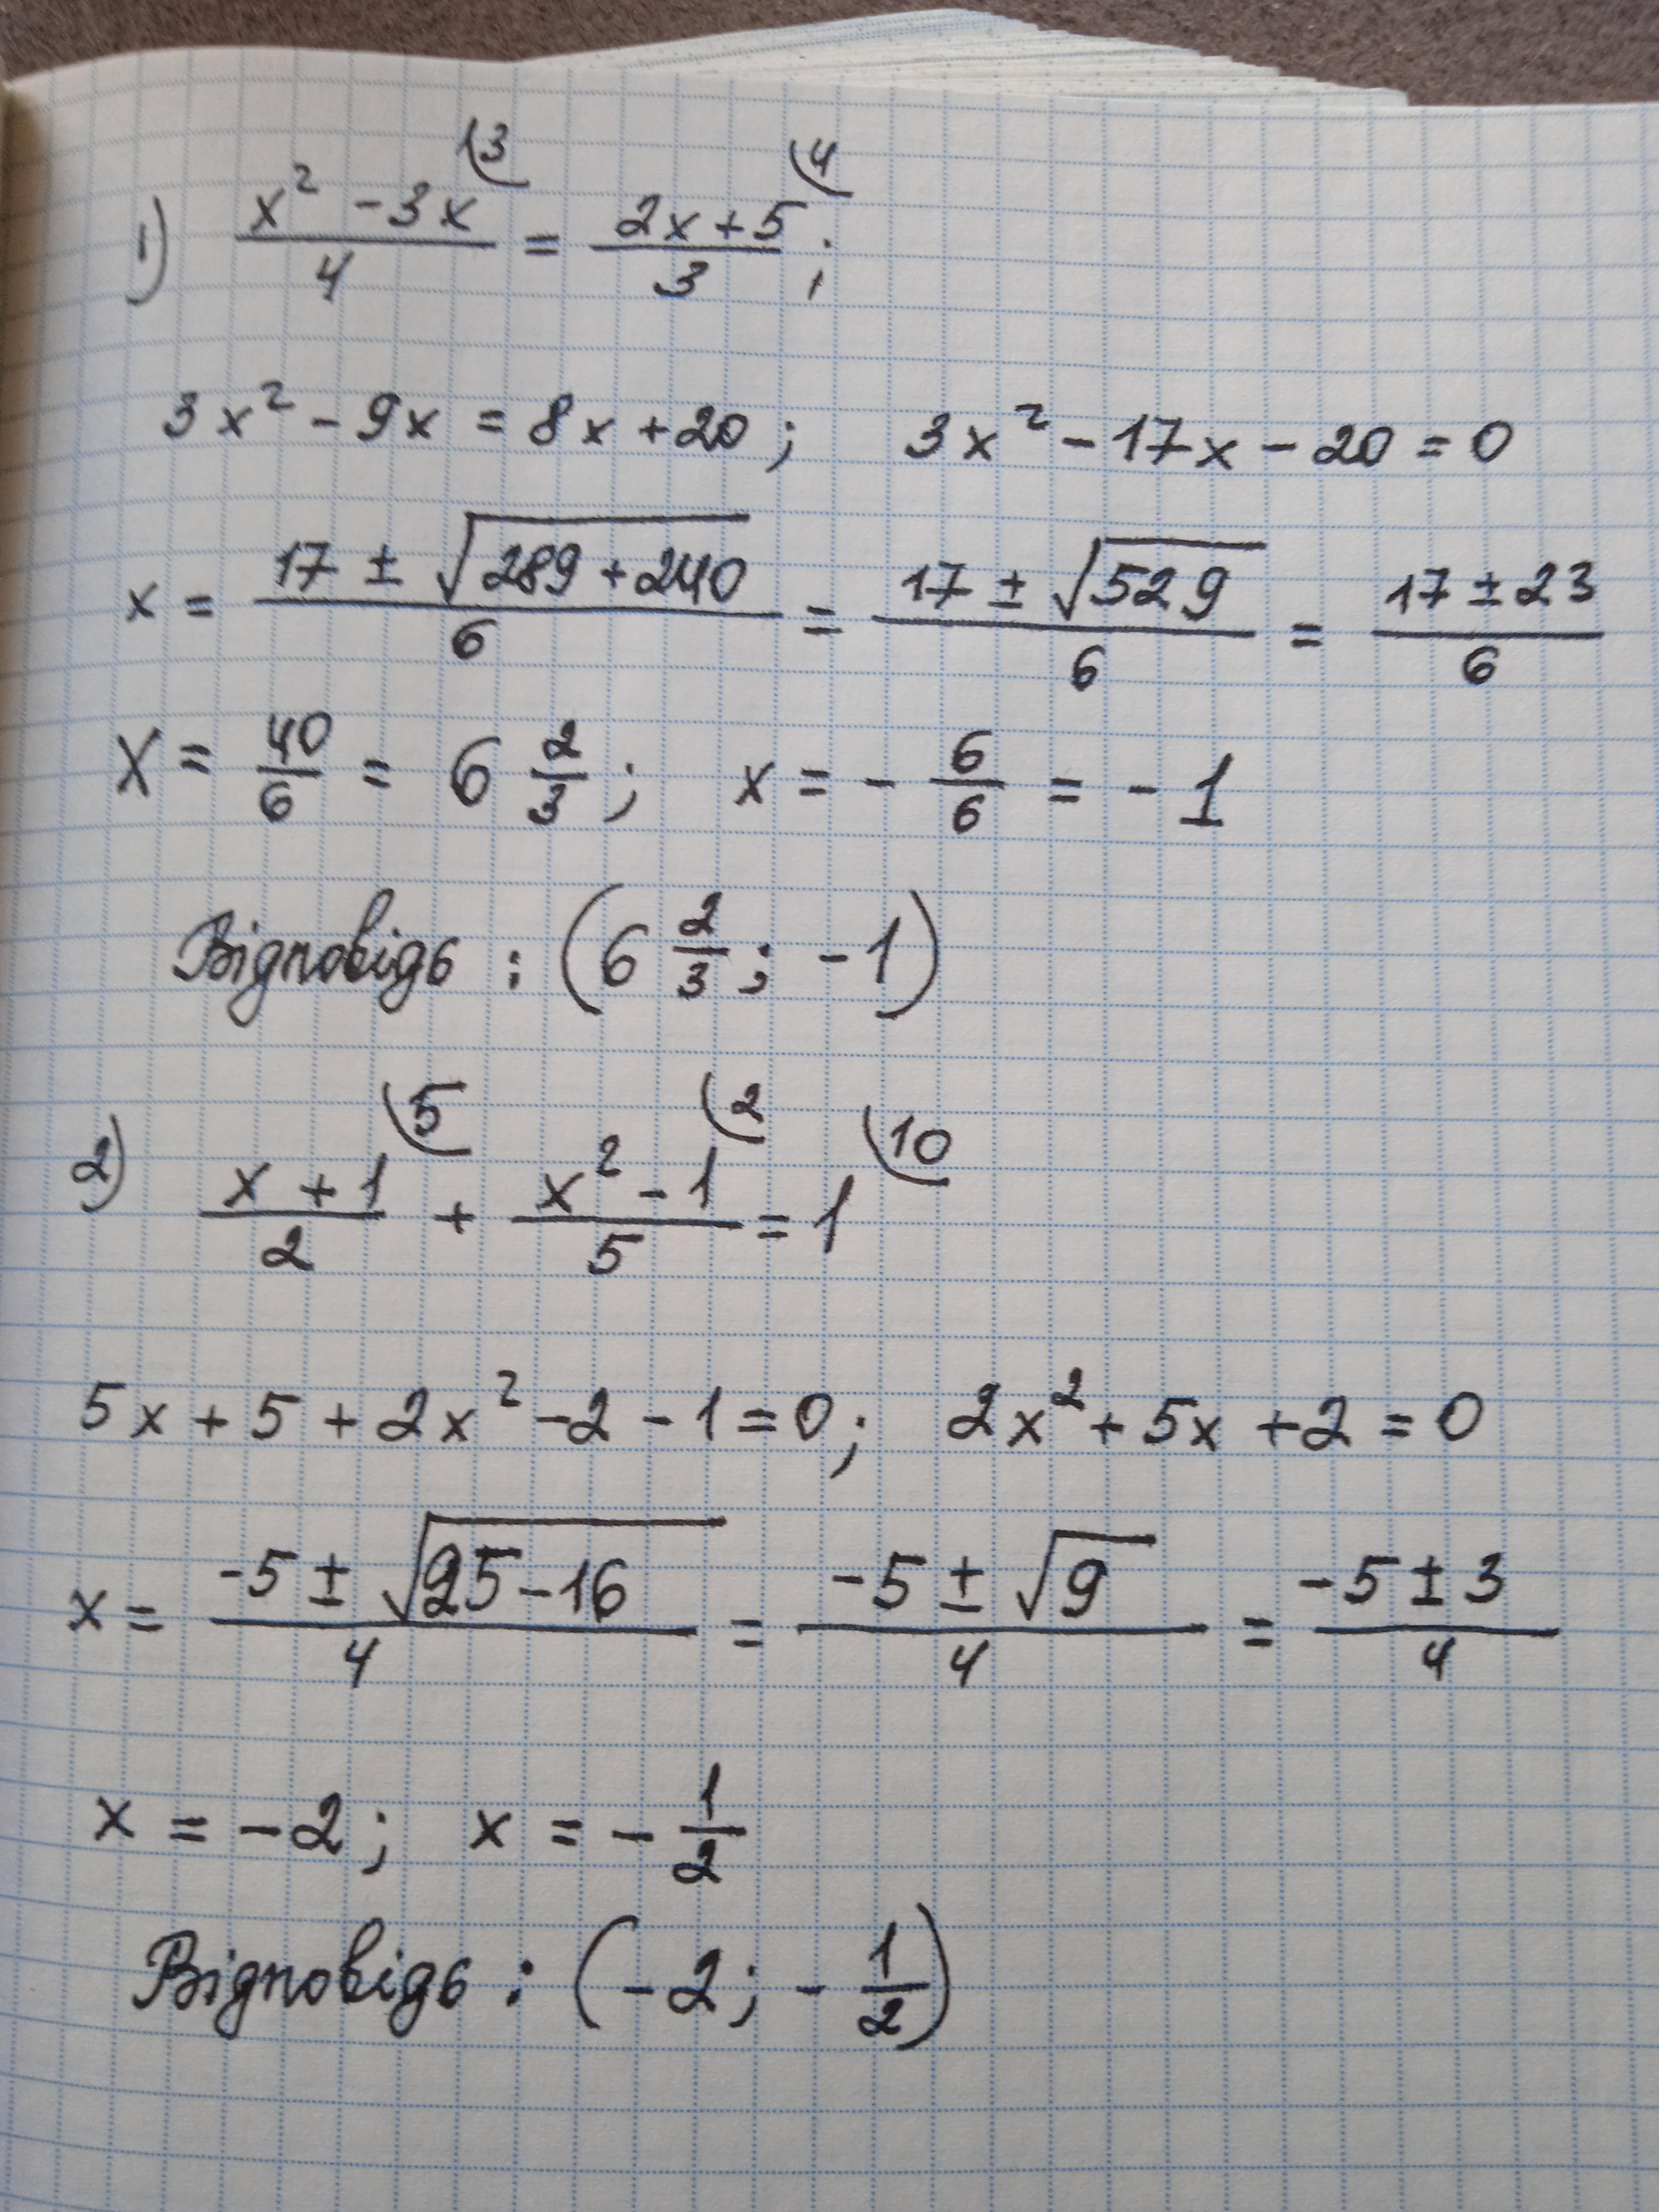 1) (x² - 3x)/4 ⁽³ = (2x + 5)/3 ⁽⁴ ;
3x² - 9x = 8x + 20 ; 3x² - 17x - 20 = 0
x = (17 ± √(289 + 240))/6 = (17 ± √529)/6 = (17 ± 23)/6
x = 40/6 = 6 2/3 ; x = - 6/6 = - 1
Відповідь : (6 2/3 ; - 1)
2) (x + 1)/2 ⁽⁵ + (x² - 1)/5 ⁽² = 1 ⁽¹⁰
5x + 5 + 2x² - 2 - 1 = 0 ; 2x² + 5x + 2 = 0
x = (-5 ± √(25 - 16))/4 = (-5 ± √9)/4 = (-5 ± 3)/4
x = - 2 ; x = - 1/2
Відповідь : (- 2 ; - 1/2)